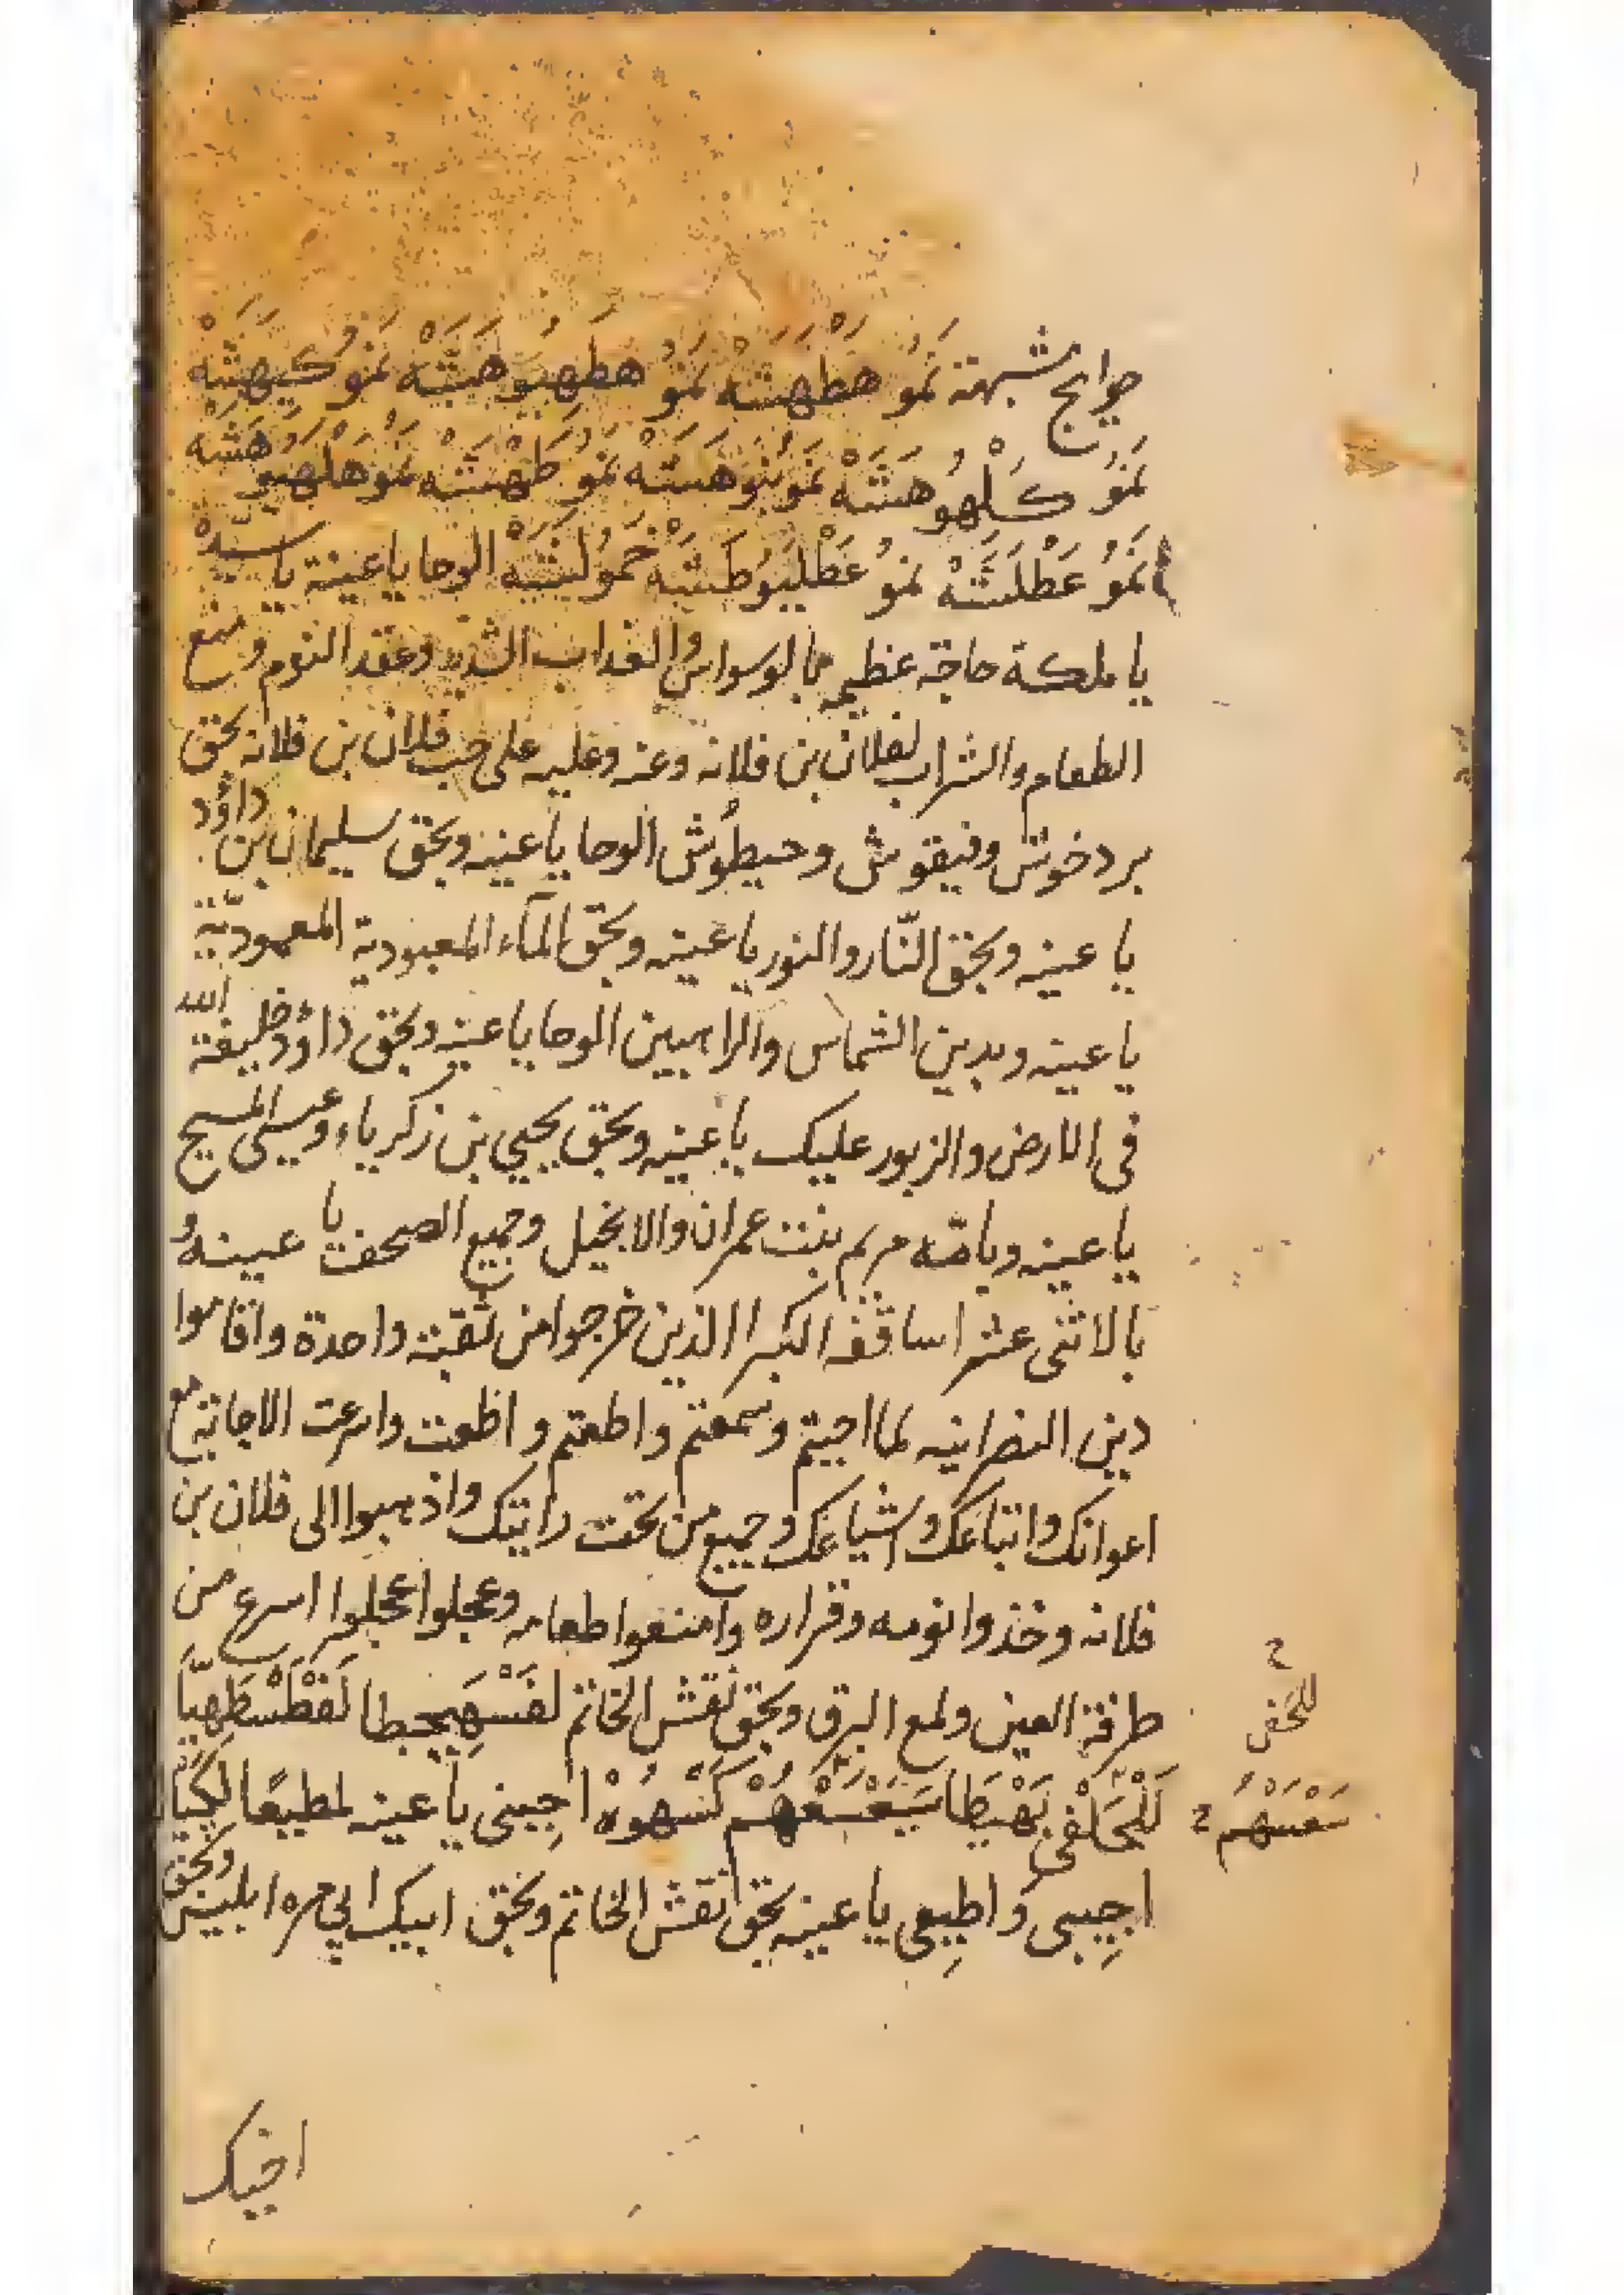 حوايج شبهة نَمُو هطهشه نمو هطهيوهشه نمو كيهشه
نَمُو كَلْهُو هشه نمو نوهشه نمو طهشه نمو هلهيوهشه
نَمُو عَطْلَشَهْ نمو عَطْليو طشه خمولشه الوحا يا عينة يا سيدة
يا ملكة حاجة عظيمه بالوسواس والعذاب الشديد وعقد النوم ومنع
الطعام والشراب لفلان بن فلانه وعزوعليه على حب فلان بن فلانه بحق
بردخوش وفيقوش وحيطوش الوحا يا عينه وبحق سليمان بن داؤد
يا عينه وبحق النّار والنور يا عينه وبحق المآء المعبودية المعموديّة
يا عينه وبدين الشماس والراهبين الوحا يا عينه وبحق داؤد خليفة الله
فى الارض والزبور عليك يا عينه وبحق يحيي بن زكرياء وعيسى المسيح
يا عينه وبامّه مريم بنت عمران والانجيل وجميع الصحف يا عينه و
بالاثنى عشر اساقفه الكبرا الذين خرجوا من ثقبته واحدة واقاموا
دين النصرانيه لما اجبتم وسمعتم واطعتم واطعت واسرعت الاجابة مع
اعوانك واتباعك واشياعك وجميع من تحت رايتك واذهبوا الى فلان بن
فلانه وخذوا نومه وقراره وامنعوا طعامه وعجلوا عجلوا اسرع من
طرفة العين ولمع البرق وبحق نقش الخاتم
اجيبنى يا عينه
اجِيبى واطِيعى يا عينه بحق نقش الخاتم وبحق ابيك ابي مره ابليس وبحق
اخيك